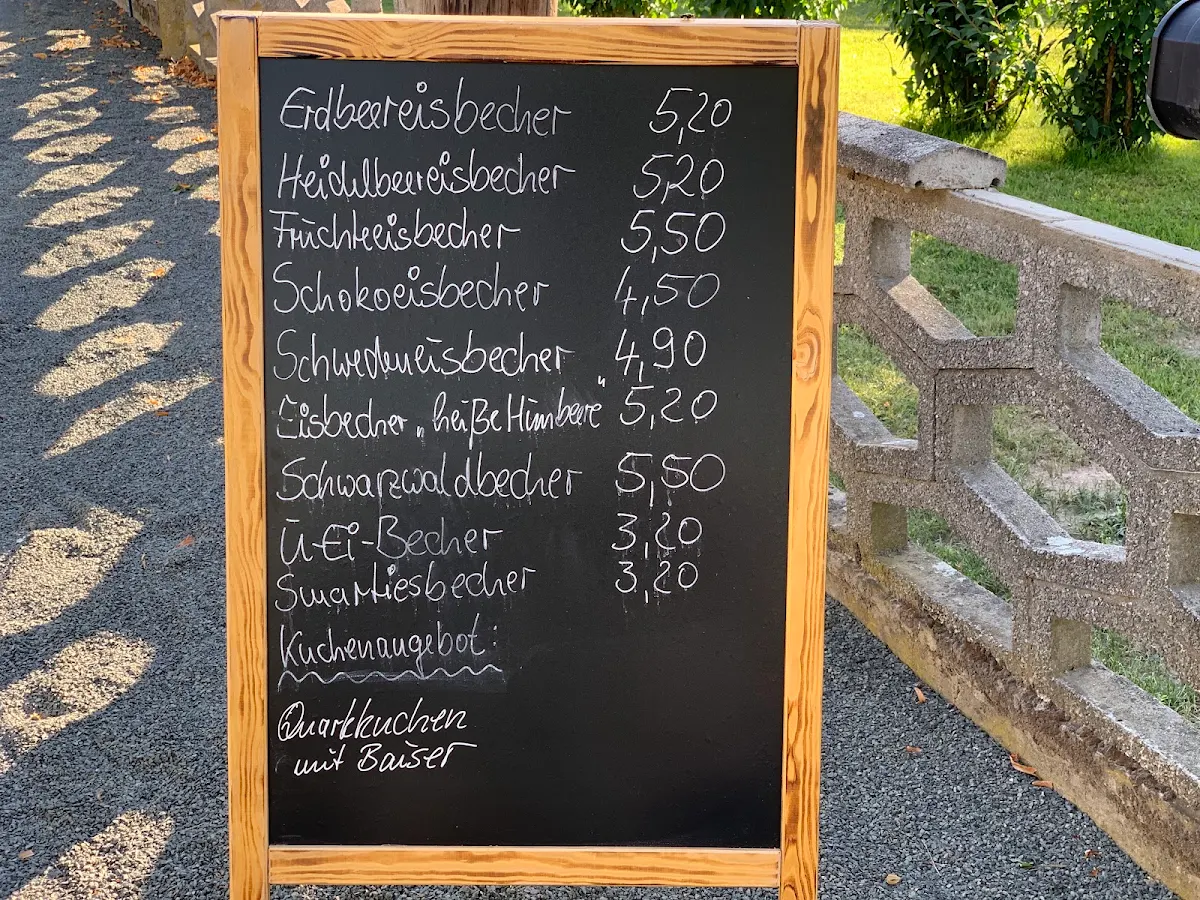 Erdbeereisbecher 5,20
Heidelbeereisbecher 5,20
Früchteeisbecher 5,50
Schokoeisbecher 4,50
Schwedeneisbecher 4,90
Eisbecher „heiße Himbeere“ 5,20
Schwarzwaldbecher 5,50
Ü-Ei-Becher 3,20
Smartiesbecher 3,20
Kuchenangebot:
Quarkkuchen
mit Baiser